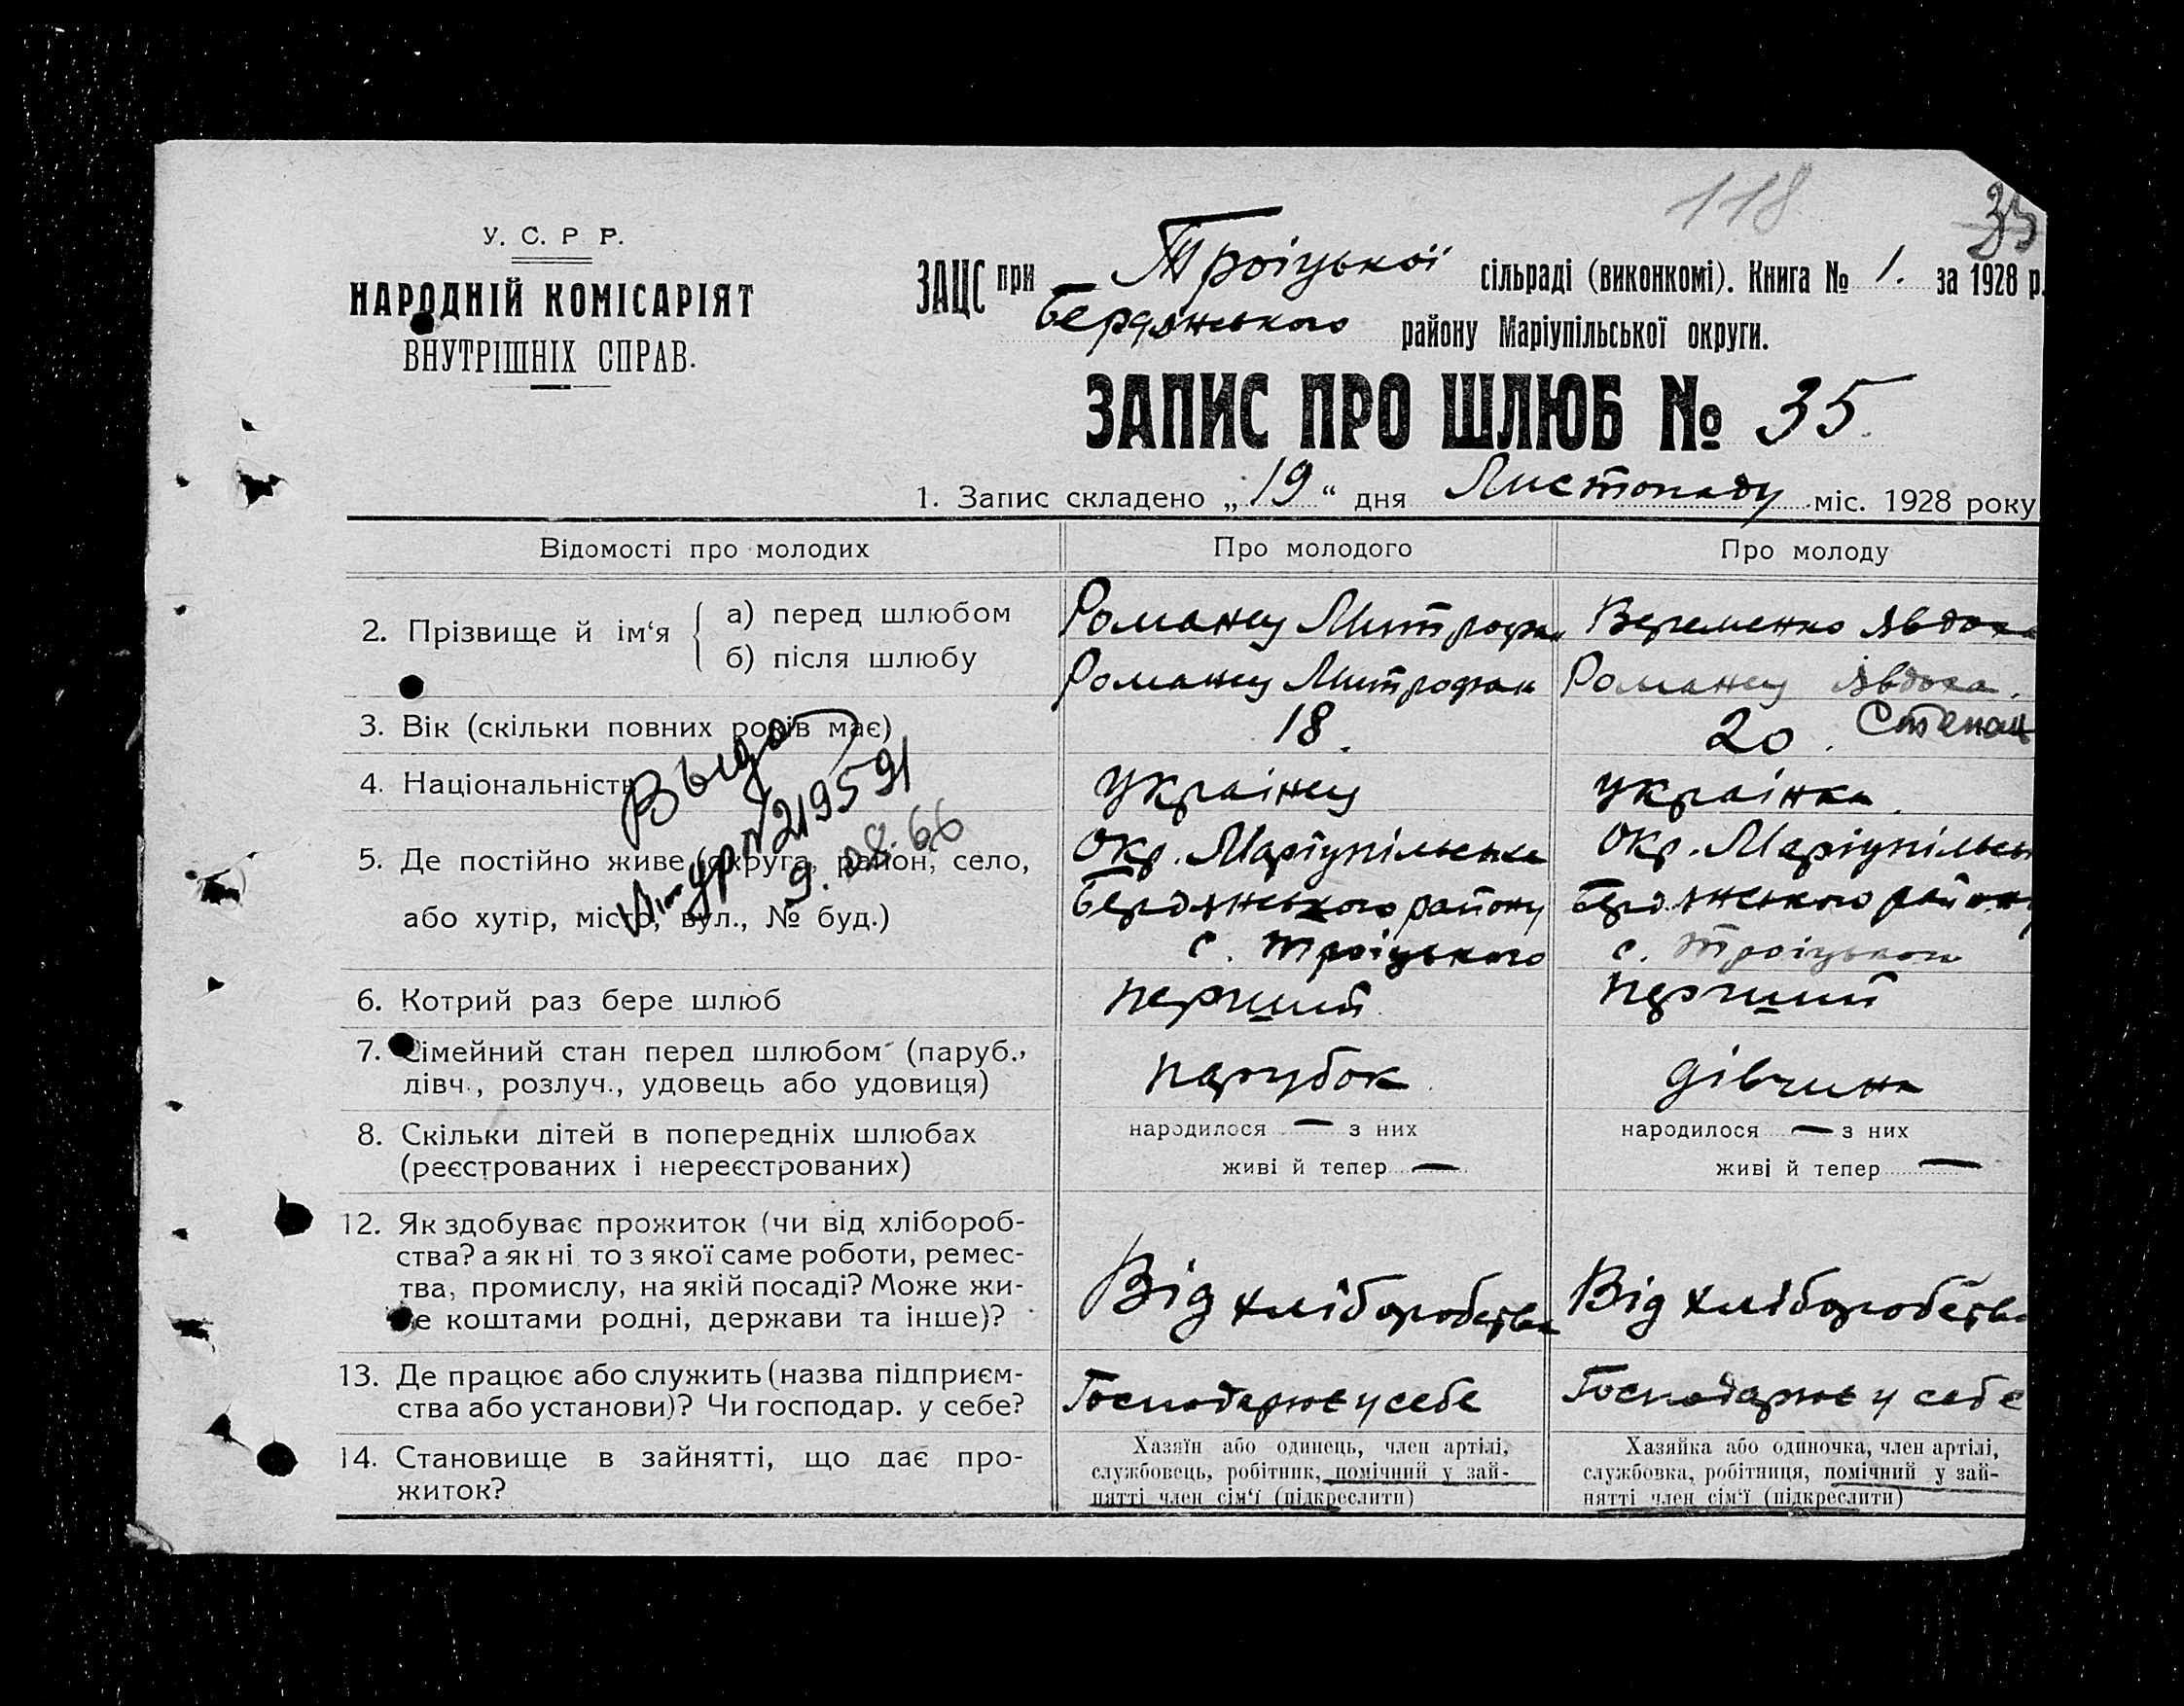 118
35
У. С. Р Р.
НАРОДНІЙ КОМІСАРІЯТ
ВНУТРІШНІХ СПРАВ.
ЗАЦС при Троіцькоі сільраді (виконкомі). Книга № 1. за 1928 р.
Бердянського району Маріупільської округи.
ЗАПИС ПРО ШЛЮБ № 35.
1. Запис складено „19“ дня Листопаду міс. 1928 року
Відомості про молодих
Про молодого
Про молоду
2. Прізвище й ім‘я
а) перед шлюбом
Романец Митрофан
Веременко Явдоха
б) після шлюбу
Романец Митрофан
Романец Явдоха.
3. Вік (скільки повних років має)
18.
20.
4. Національність
Украінец
Украінка.
5. Де постійно живе (округа, район, село,
або хутір, місто, вул., № буд.)
Окр. Маріупільська
Бердянського району
с. Троіцького
Окр. Маріупільсь
Бердянського району
с. Троіцького
№219591
9.
66
6. Котрий раз бере шлюб
перший
перший
7. Сімейний стан перед шлюбом (паруб.,
дівч., розлуч., удовець або удовиця)
парубок
дівчина
8. Скільки дітей в попередніх шлюбах
(реєстрованих і нереєстрованих)
народилося — з них
живі й тепер —
народилося — з них
живі й тепер —
12. Як здобуває прожиток (чи від хлібороб-
ства? а як ні то з якої саме роботи, ремес-
тва, промислу, на якій посаді? Може жи-
ве коштами родні, держави та інше)?
Від хліборобства
Від хліборобства
13. Де працює або служить (назва підприєм-
ства або установи)? Чи господар. у себе?
Господарює у себе
Господарює у себе
14. Становище в зайнятті, що дає про-
житок?
Хазяїн або одинець, член артілі,
службовець, робітник, помічний у зай-
нятті член сім‘ї (підкреслити)
Хазяйка або одиночка, член артілі,
службовка, робітниця, помічний у зай-
нятті член сім‘ї (підкреслити)